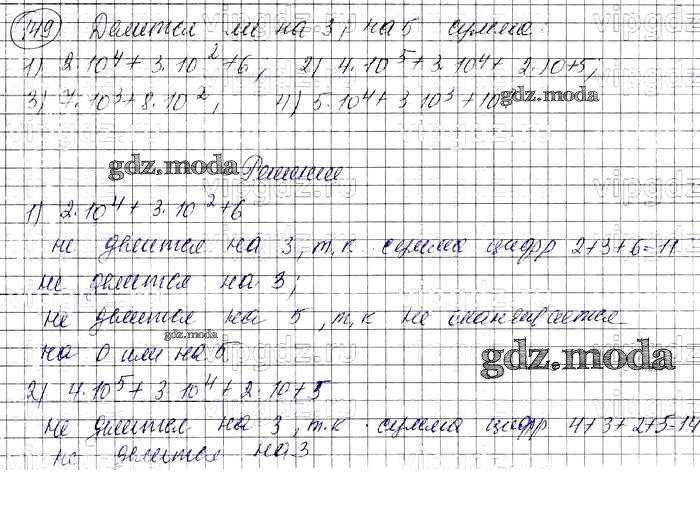 149 Делится ли на 3, на 5 сумма:
1) 2·10⁴ + 3·10² + 6, 2) 4·10⁵ + 3·10⁴ + 2·10 + 5;
3) 7·10³ + 8·10², 4) 5·10⁴ + 3·10³ + 10
gdz.moda
gdz.moda Решение
1) 2·10⁴ + 3·10² + 6
не делится на 3, т.к сумма цифр 2+3+6=11
не делится на 3;
не делится на 5, т,к не оканчивается
gdz.moda
на 0 или на 5
gdz.moda
2) 4·10⁵ + 3·10⁴ + 2·10 + 5
не делится на 3, т.к. сумма цифр 4+3+2+5=14
не делится на 3
vipgdz.ru